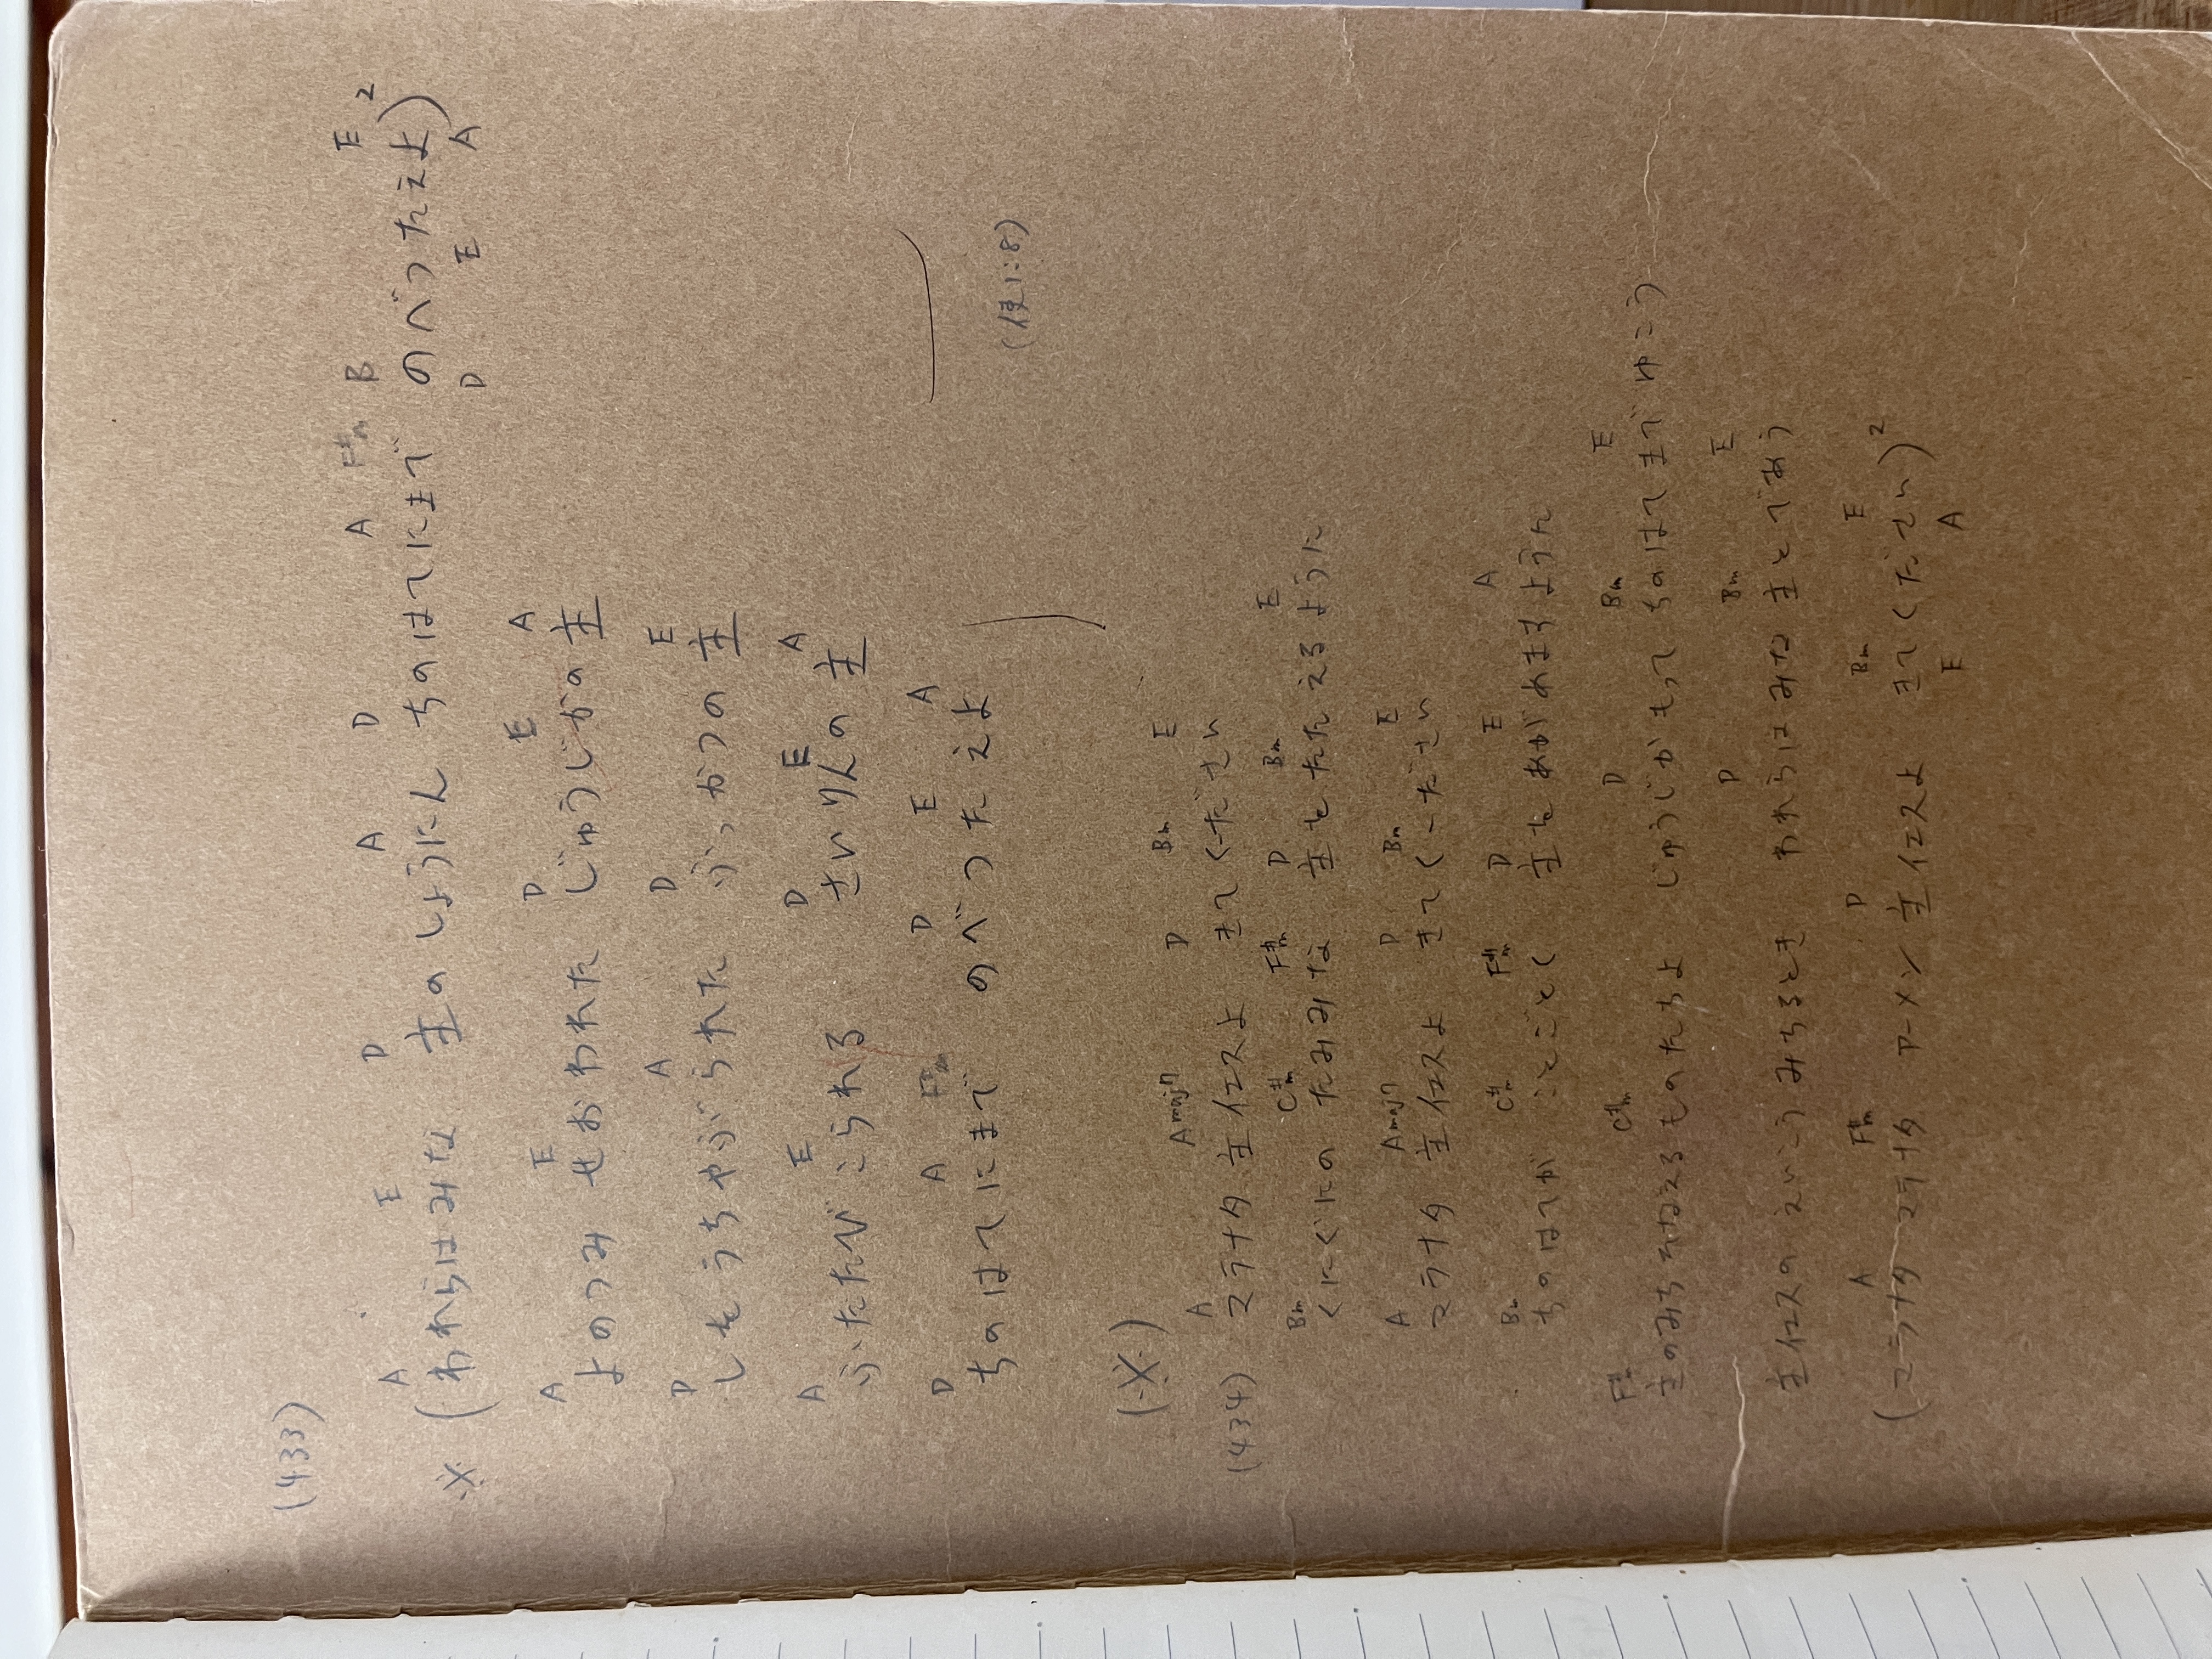 (433)
A E D A D A F#m B E
※ (われらはみな 主のしょうにん ちのはてにまで のべつたえよ)²
D E A
A E D E A
よのつみ せおわれた じゅうじかの主
D A D E
しをうちやぶられた ふっかつの主
A E D E A
ふたたびこられる さいりんの主
D A F#m D E A
ちのはてにまで のべつたえよ
(使1:8)
(※)
A Amaj7 D Bm E
(434) マラナタ 主イエスよ きてくーださい
Bm C#m F#m D Bm E
くにぐにの たみみな 主をたたえるように
A Amaj7 D Bm E
マラナタ 主イエスよ きてくーださい
Bm C#m F#m D E A
ちのはてが ことごとく 主をあがめますように
F#m C#m D Bm E
主のみちそなえるものたちよ じゅうじかもって ちのはてまでゆこう
D Bm E
主イエスの えいこうみちるとき われらはみな主とであう
A F#m D Bm E
(マラナタ マラナタ アーメン主イエスよ きてください)²
E A